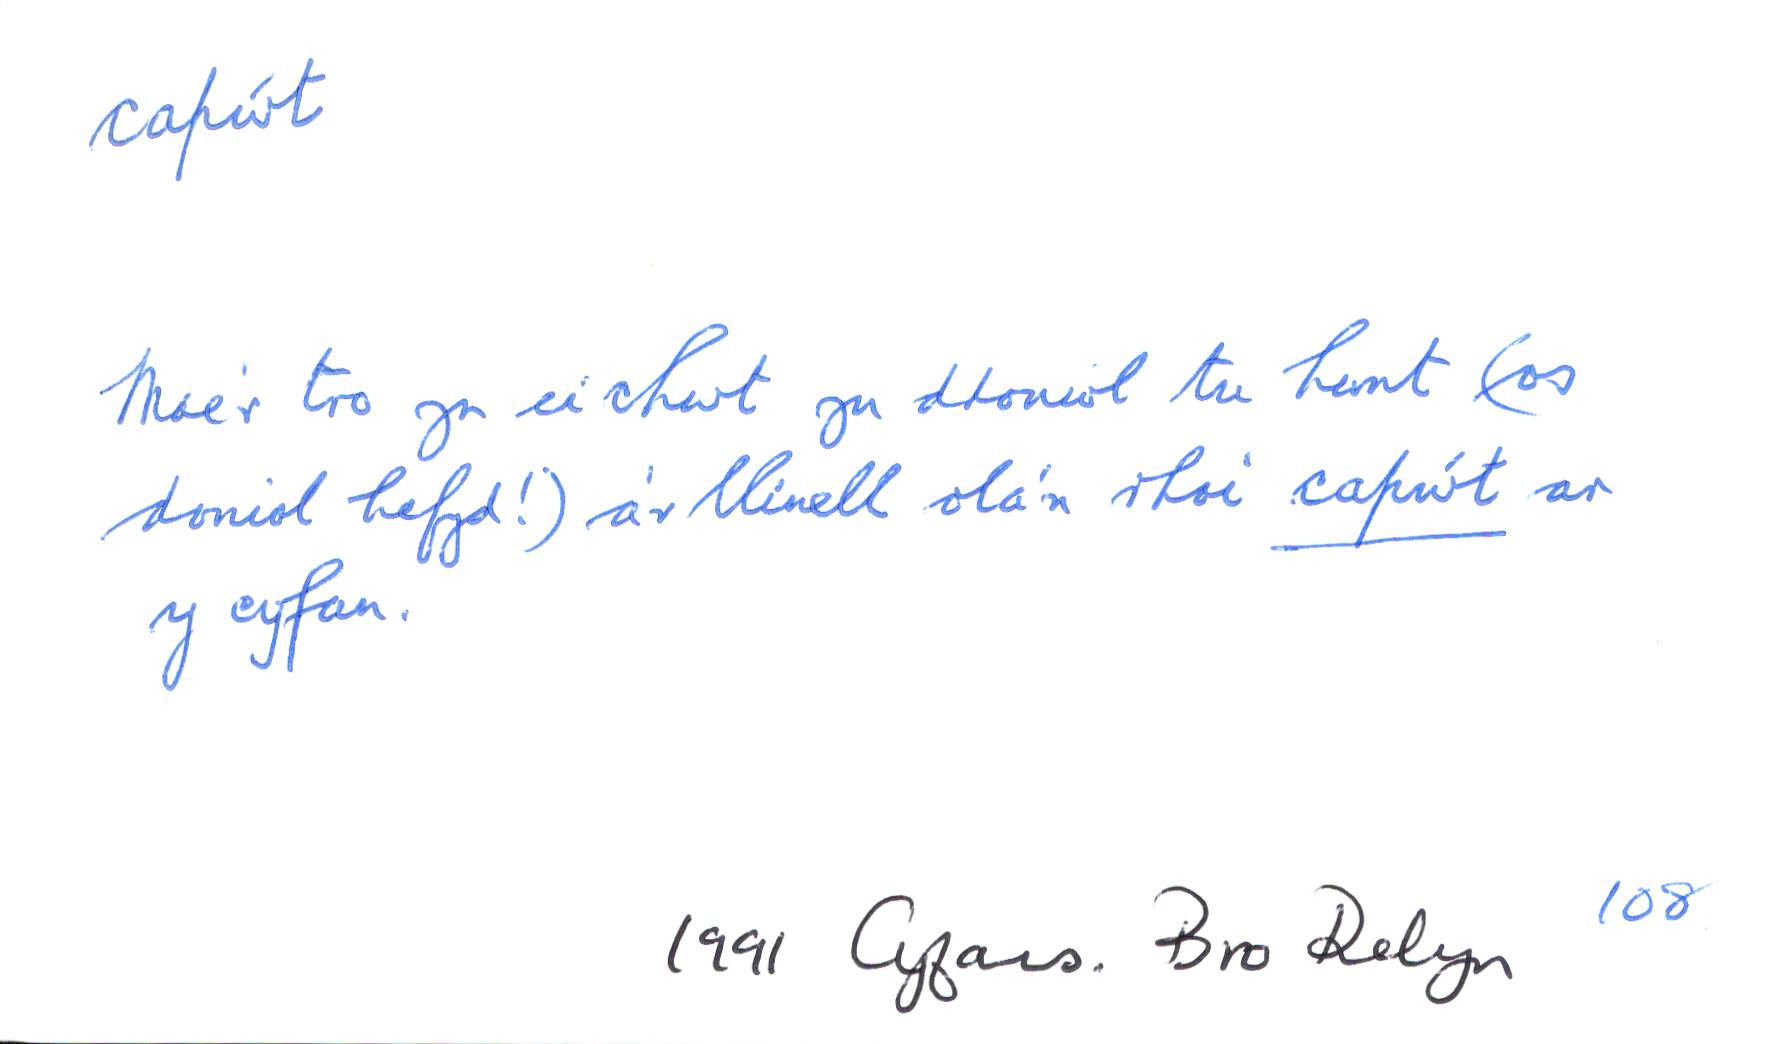 capẃt
Mae'r tro yn ei chwt yn ddoniol tu hwnt (os
doniol hefyd!) a'r llinell ola'n rhoi capẃt ar
y cyfan.
108
1991 Cyfans. Bro Delyn